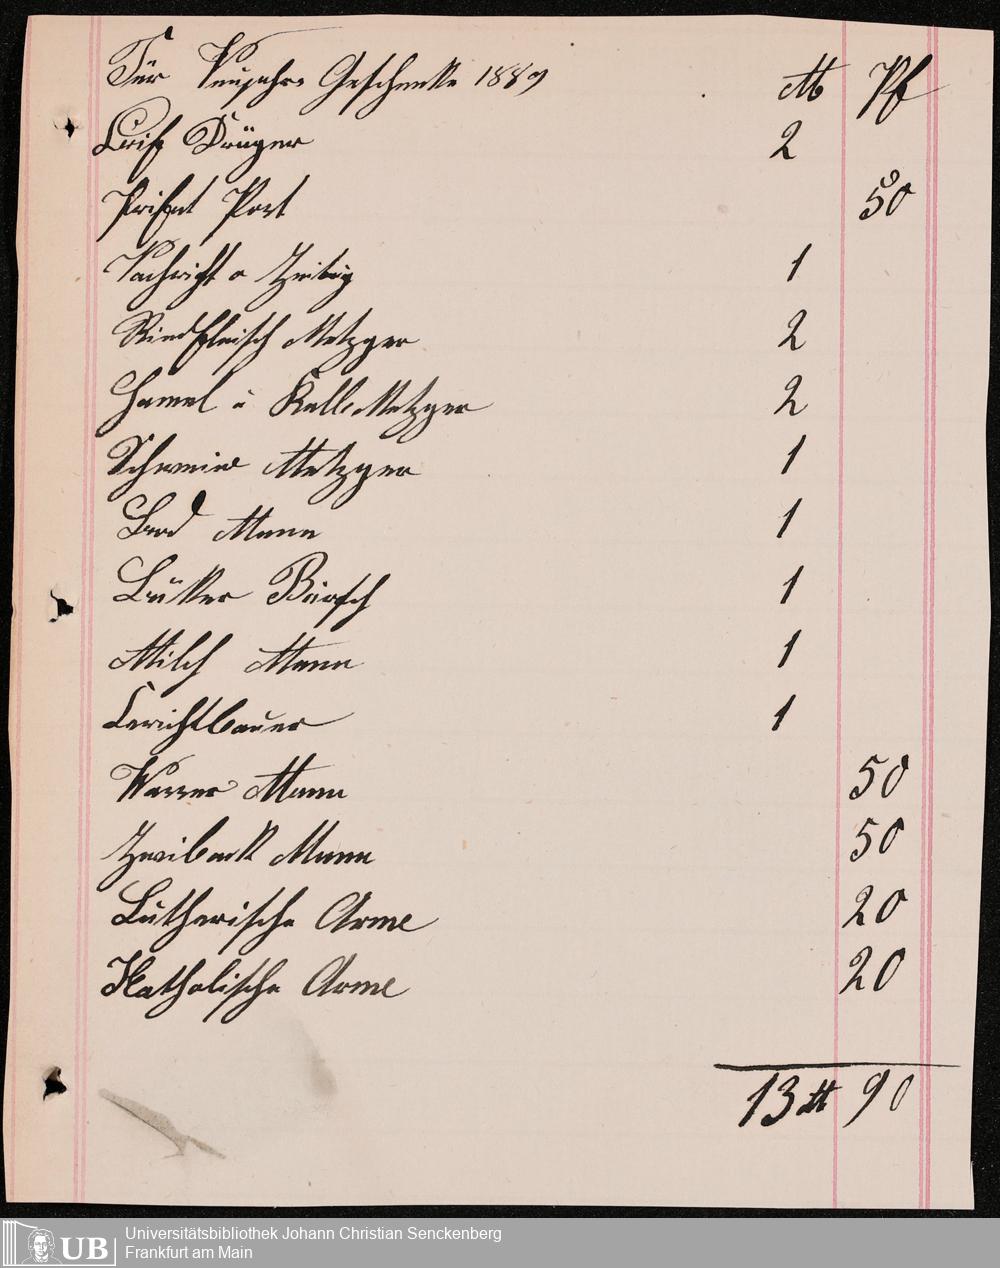 Für Neujahrs Geschenke 1889 M Pf
Brif Dräger 2
Prifat Post 50
Nachricht a Zeitug 1
Rindfleisch Metzger 2
Hamel u Kalb Metzger 2
Schwein Metzger 1
Brod Mann 1
Bäkker Bursch 1
Milch Mann 1
50
Zweiback Mann 50
Lutherische Arme 20
Katholische Arme 20
13 M 90
Universitätsbibliothek Johann Christian Senckenberg
Frankfurt am Main
UB